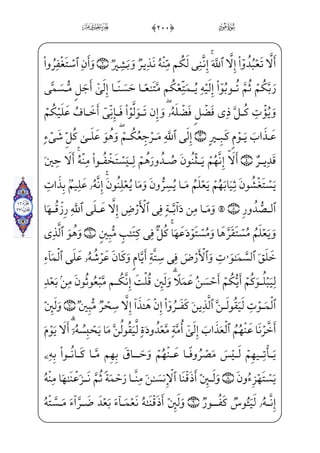 ﴿٢٠٠﴾
أَلَّا تَعْبُدُوٓا۟ إِلَّا ٱللَّهَ ۚ إِنَّنِى لَكُم مِّنْهُ نَذِيرٌ وَبَشِيرٌ وَأَنِ ٱسْتَغْفِرُوا۟
رَبَّكُمْ ثُمَّ تُوبُوٓا۟ إِلَيْهِ يُمَتِّعْكُم مَّتَـٰعًا حَسَنًا إِلَىٰٓ أَجَلٍ مُّسَمًّى
وَيُؤْتِ كُلَّ ذِى فَضْلٍ فَضْلَهُۥ ۖ وَإِن تَوَلَّوْا۟ فَإِنِّىٓ أَخَافُ عَلَيْكُمْ
عَذَابَ يَوْمٍ كَبِيرٍ إِلَى ٱللَّهِ مَرْجِعُكُمْ ۖ وَهُوَ عَلَىٰ كُلِّ شَىْءٍ
قَدِيرٌ أَلَآ إِنَّهُمْ يَثْنُونَ صُدُورَهُمْ لِيَسْتَخْفُوا۟ مِنْهُ ۚ أَلَا حِينَ
يَسْتَغْشُونَ ثِيَابَهُمْ يَعْلَمُ مَا يُسِرُّونَ وَمَا يُعْلِنُونَ ۚ إِنَّهُۥ عَلِيمٌۢ بِذَاتِ
ٱلصُّدُورِ ۞ وَمَا مِن دَآبَّةٍ فِى ٱلْأَرْضِ إِلَّا عَلَى ٱللَّهِ رِزْقُهَا
وَيَعْلَمُ مُسْتَقَرَّهَا وَمُسْتَوْدَعَهَا ۚ كُلٌّ فِى كِتَـٰبٍ مُّبِينٍ وَهُوَ ٱلَّذِى
خَلَقَ ٱلسَّمَـٰوَٰتِ وَٱلْأَرْضَ فِى سِتَّةِ أَيَّامٍ وَكَانَ عَرْشُهُۥ عَلَى ٱلْمَآءِ
لِيَبْلُوَكُمْ أَيُّكُمْ أَحْسَنُ عَمَلًا ۗ وَلَئِن قُلْتَ إِنَّكُم مَّبْعُوثُونَ مِنۢ بَعْدِ
ٱلْمَوْتِ لَيَقُولَنَّ ٱلَّذِينَ كَفَرُوٓا۟ إِنْ هَـٰذَآ إِلَّا سِحْرٌ مُّبِينٌ وَلَئِنْ
أَخَّرْنَا عَنْهُمُ ٱلْعَذَابَ إِلَىٰٓ أُمَّةٍ مَّعْدُودَةٍ لَّيَقُولُنَّ مَا يَحْبِسُهُۥٓ ۗ أَلَا يَوْمَ
يَأْتِيهِمْ لَيْسَ مَصْرُوفًا عَنْهُمْ وَحَاقَ بِهِم مَّا كَانُوا۟ بِهِۦ
يَسْتَهْزِءُونَ وَلَئِنْ أَذَقْنَا ٱلْإِنسَـٰنَ مِنَّا رَحْمَةً ثُمَّ نَزَعْنَـٰهَا مِنْهُ
إِنَّهُۥ لَيَـُٔوسٌ كَفُورٌ وَلَئِنْ أَذَقْنَـٰهُ نَعْمَآءَ بَعْدَ ضَرَّآءَ مَسَّتْهُ